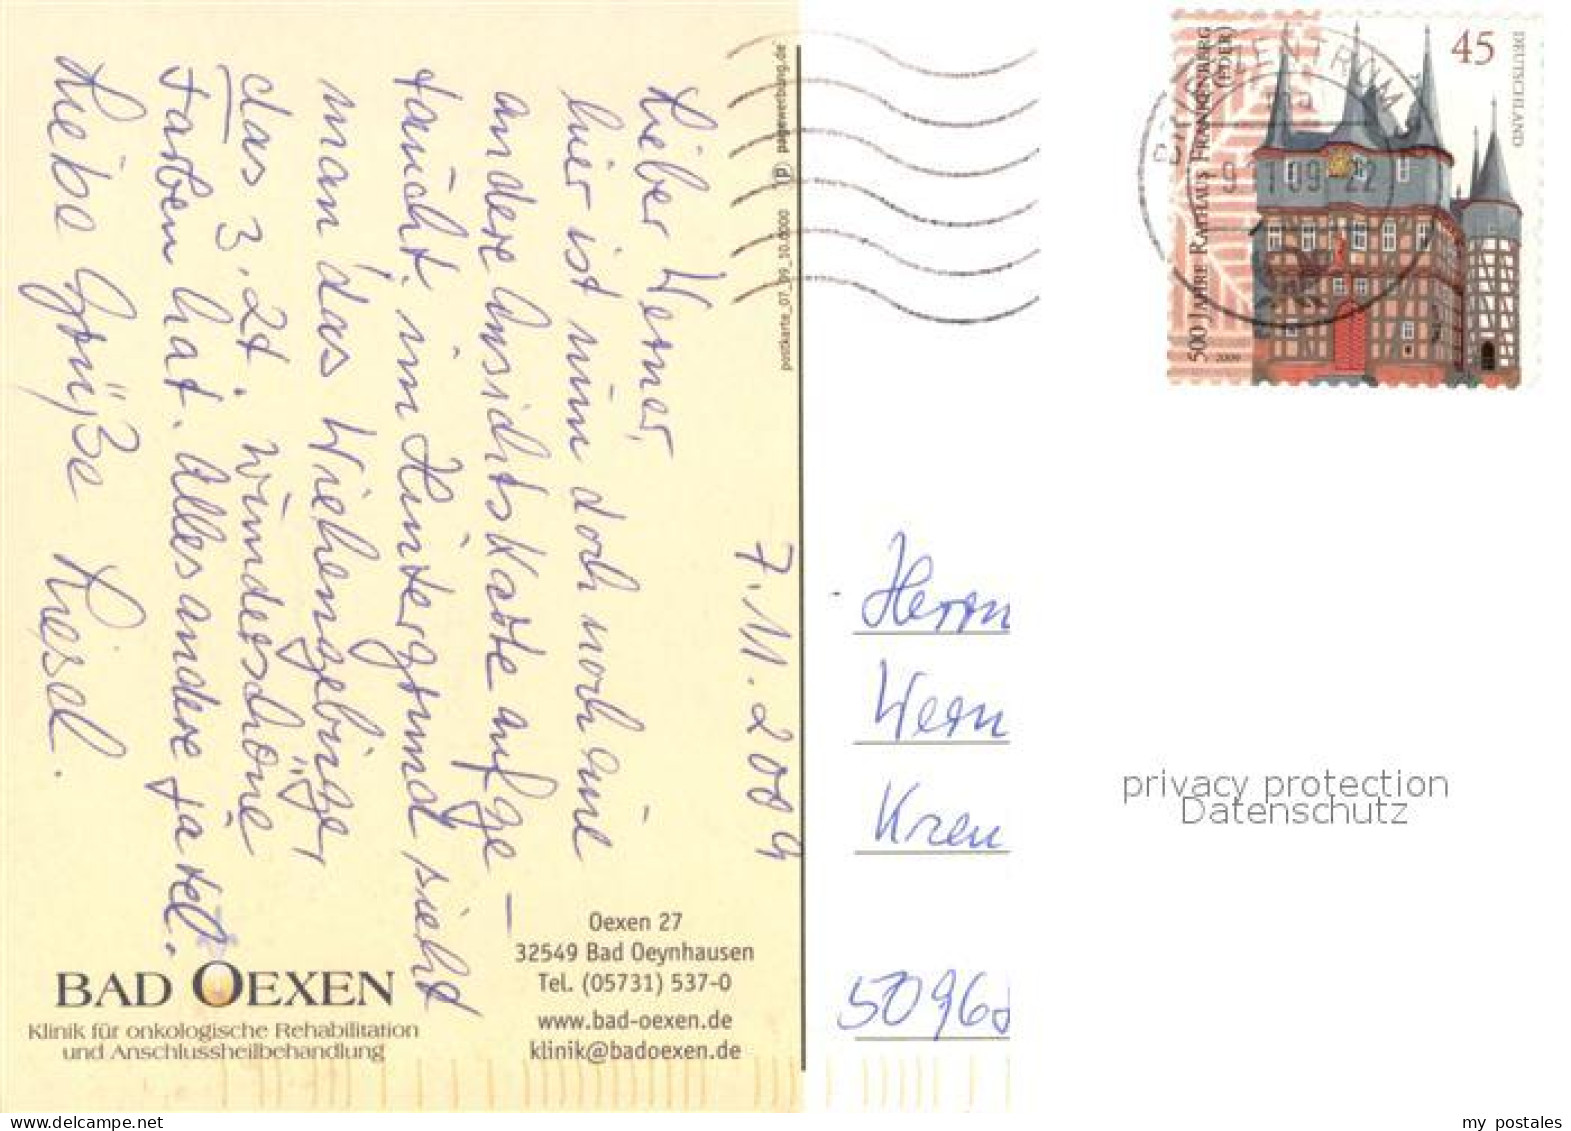 7.11.2009
Lieber Werner,
hier ist nun doch noch eine
andere Ansichtskarte aufge-
taucht. im Hintergrund sieht
man das Wiehengebirge,
das z. Zt. wunderschöne
Farben hat. Alles andere ja tel.
Liebe Grüße Liesel.
postkarte_07_09_10.0000 p papewerbung.de
BAD OEXEN
Klinik für onkologische Rehabilitation
und Anschlussheilbehandlung
Oexen 27
32549 Bad Oeynhausen
Tel. (05731) 537-0
www.bad-oexen.de
klinik@badoexen.de
500 JAHRE RATHAUS FRANKENBERG
(EDER)
2009
45
DEUTSCHLAND
BRIEFZENTRUM
09-22
Herrn
Wern
5096
privacy protection
Datenschutz
my postales